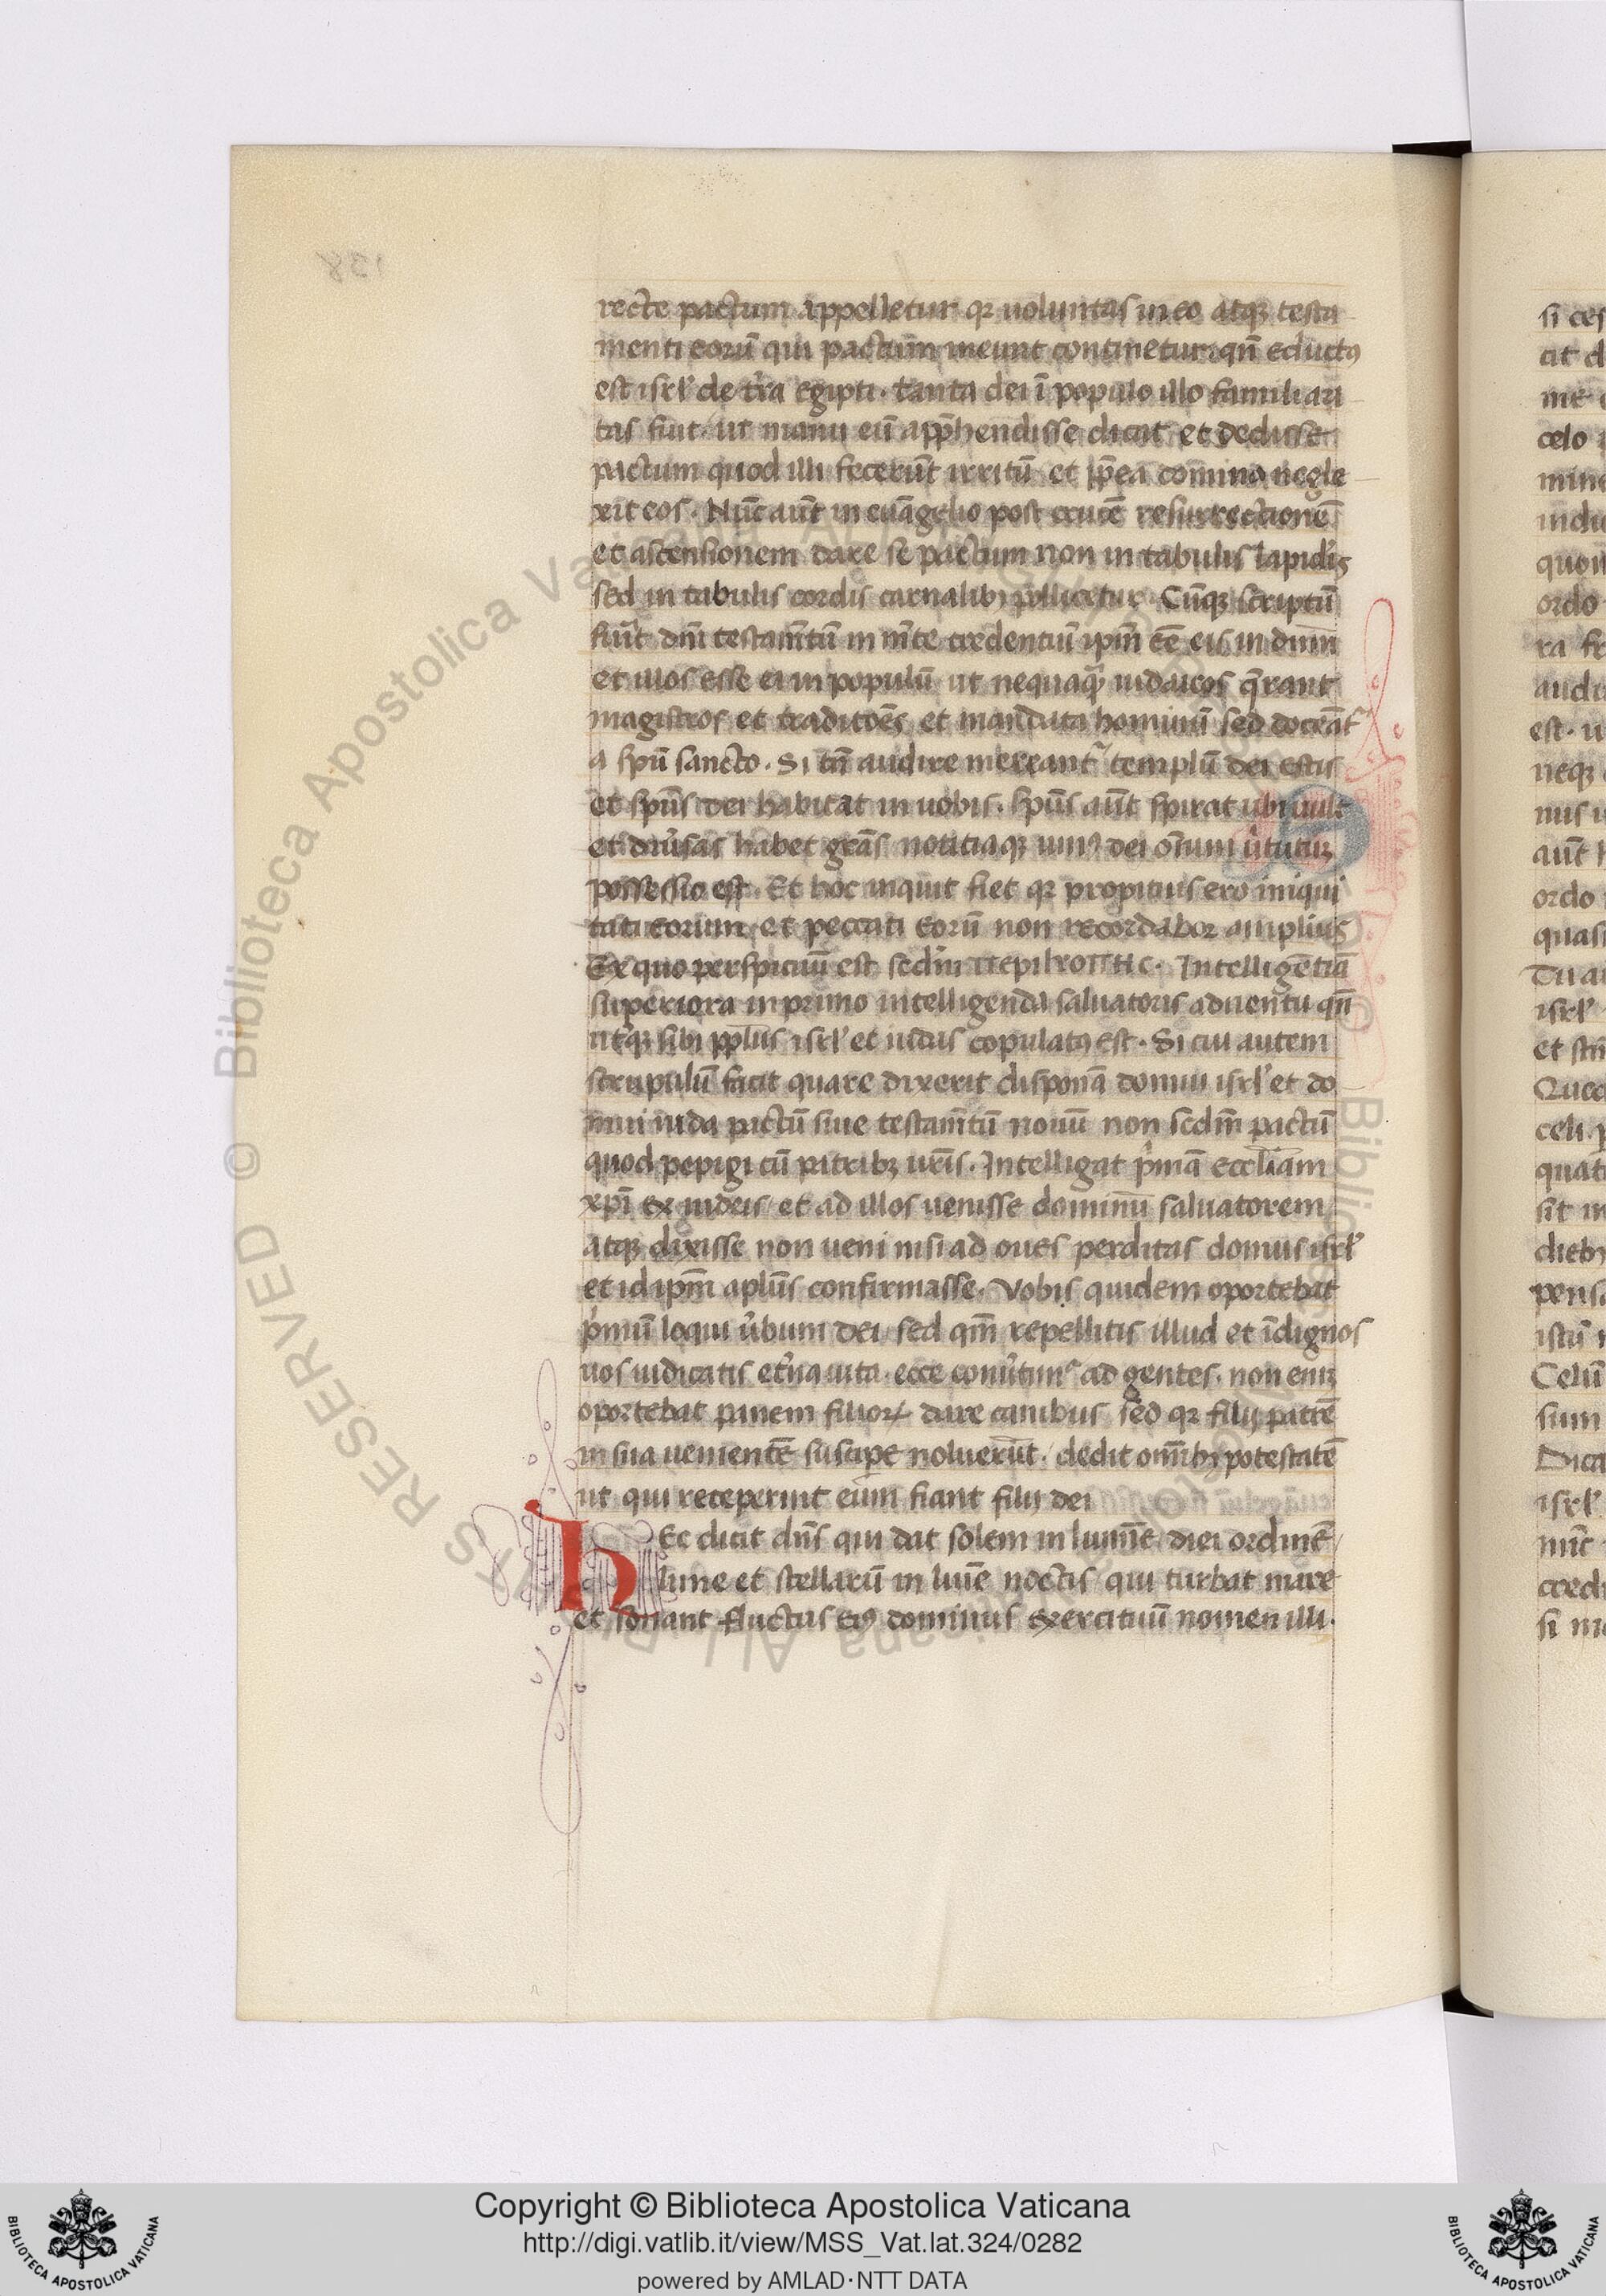 recte pactum appelletur qꝛ uoluntas in eo atqꝫ testa
menti eorū qui pactum ineunt continetur. qn̄ eductꝯ
est isrl' de tr̄a egipti. tanta dei ī populo illo familiari
tas fuit. ut manu eū app̄hendisse dicat et dedisse
pactum quod illi fecerūt irritū et ꝓpea domino negle
xit eos. Nūc aūt in euāgelio post crucē resurrectionē
et ascensionem dare se pactum non in tabulis lapidis
sed in tabulis cordis carnalibꝫ pollicetur. Cūqꝫ scriptū
fuīt dnī testamtū in mēte credentiū ipm̄ eē eis in dnm̄
et illos esse ei in populū ut nequaqꝫ iudaicos q̄rant
magistros et traditōes et mandata hominū sed doceāt᷑
a spū sancto. Si tn̄ audire mereant᷑ templū dei estis
et spūs dei habitat in uobis. spūs aūt spirat ubi uult
et diūsas habet grās notitiaqꝫ uniꝯ dei oīum ūtutuꝫ
possessio est. Et hoc inquit fiet qꝛ propitius ero iniqui
tati eorum et peccati eorū non recordabor amplius
Ex quo perspicuū est scdm̄
Intelligētiā
superiora in primo intelligenda saluatoris aduentu qn̄
utqꝫ sibi pplūs isrl' et iudas copulatꝯ est. Si cui autem
scrupulū facit quare dixerit disponā domui isrl' et do
mui iuda pactū siue testamtū nouū non scdm̄ pactū
quod pepigi cū patribꝫ ur̄is. Intelligat p̄mā eccl̄iam
xpī ex iudeis et ad illos uenisse dominū saluatorem
atqꝫ dixisse non ueni nisi ad oues perditas domus isrl'
et id ipm̄ aplūs confirmasse. Vobis quidem oportebat
p̄mū loqui ūbum dei sed qm̄ repellitis illud et īdignos
uos iudicatis et̄na uita. ecce conūtimꝰ ad gentes. non eniꝫ
oportebat panem filioꝝ dare canibus sed qꝛ filij patrē
in sua uenientē suscipe noluerūt. dedit om̄ibꝫ potestatē
ut qui receperint eum fiant filij dei
HEc dicit dn̄s qui dat solem in lumīe diei ordinē
lune et stellarū in luīe noctis qui turbat mare
et sonant fluctus eiꝯ dominus exercituū nomen illi.
Copyright © Biblioteca Apostolica Vaticana
http://digi.vatlib.it/view/MSS_Vat.lat.324/0282
powered by AMLAD·NTT DATA